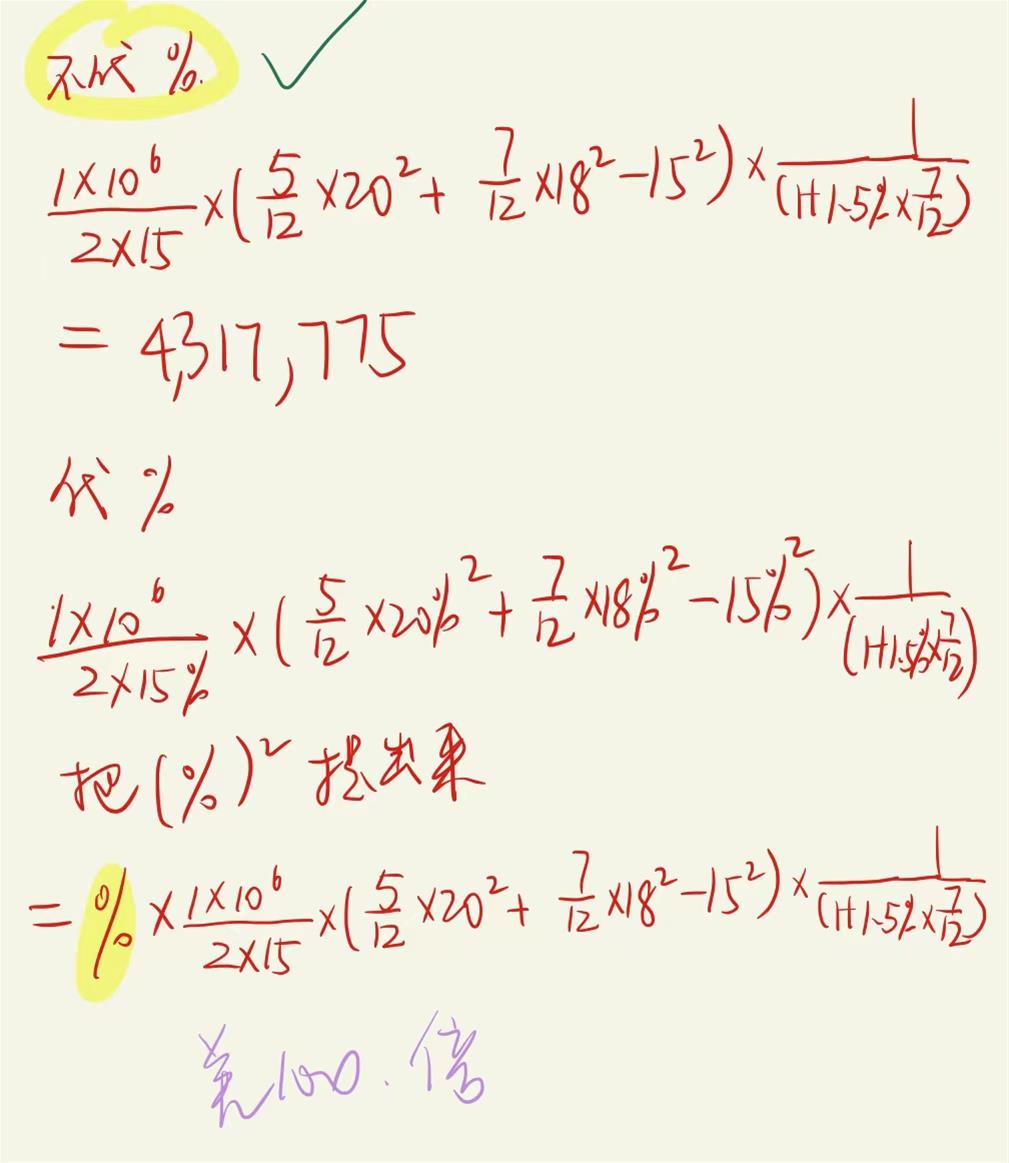 不代 %.
1×10^6/(2×15) × (5/12 ×20² + 7/12 ×18² −15²) × 1/(1+1.5%×7/12)
= 4,317,775
代 %
1×10^6/(2×15%) × (5/12 ×20%² + 7/12 ×18%² −15%²) × 1/(1+1.5%×7/12)
把(%)² 提出来
= % × 1×10^6/(2×15) × (5/12 ×20² + 7/12 ×18² −15²) × 1/(1+1.5%×7/12)
差100.倍